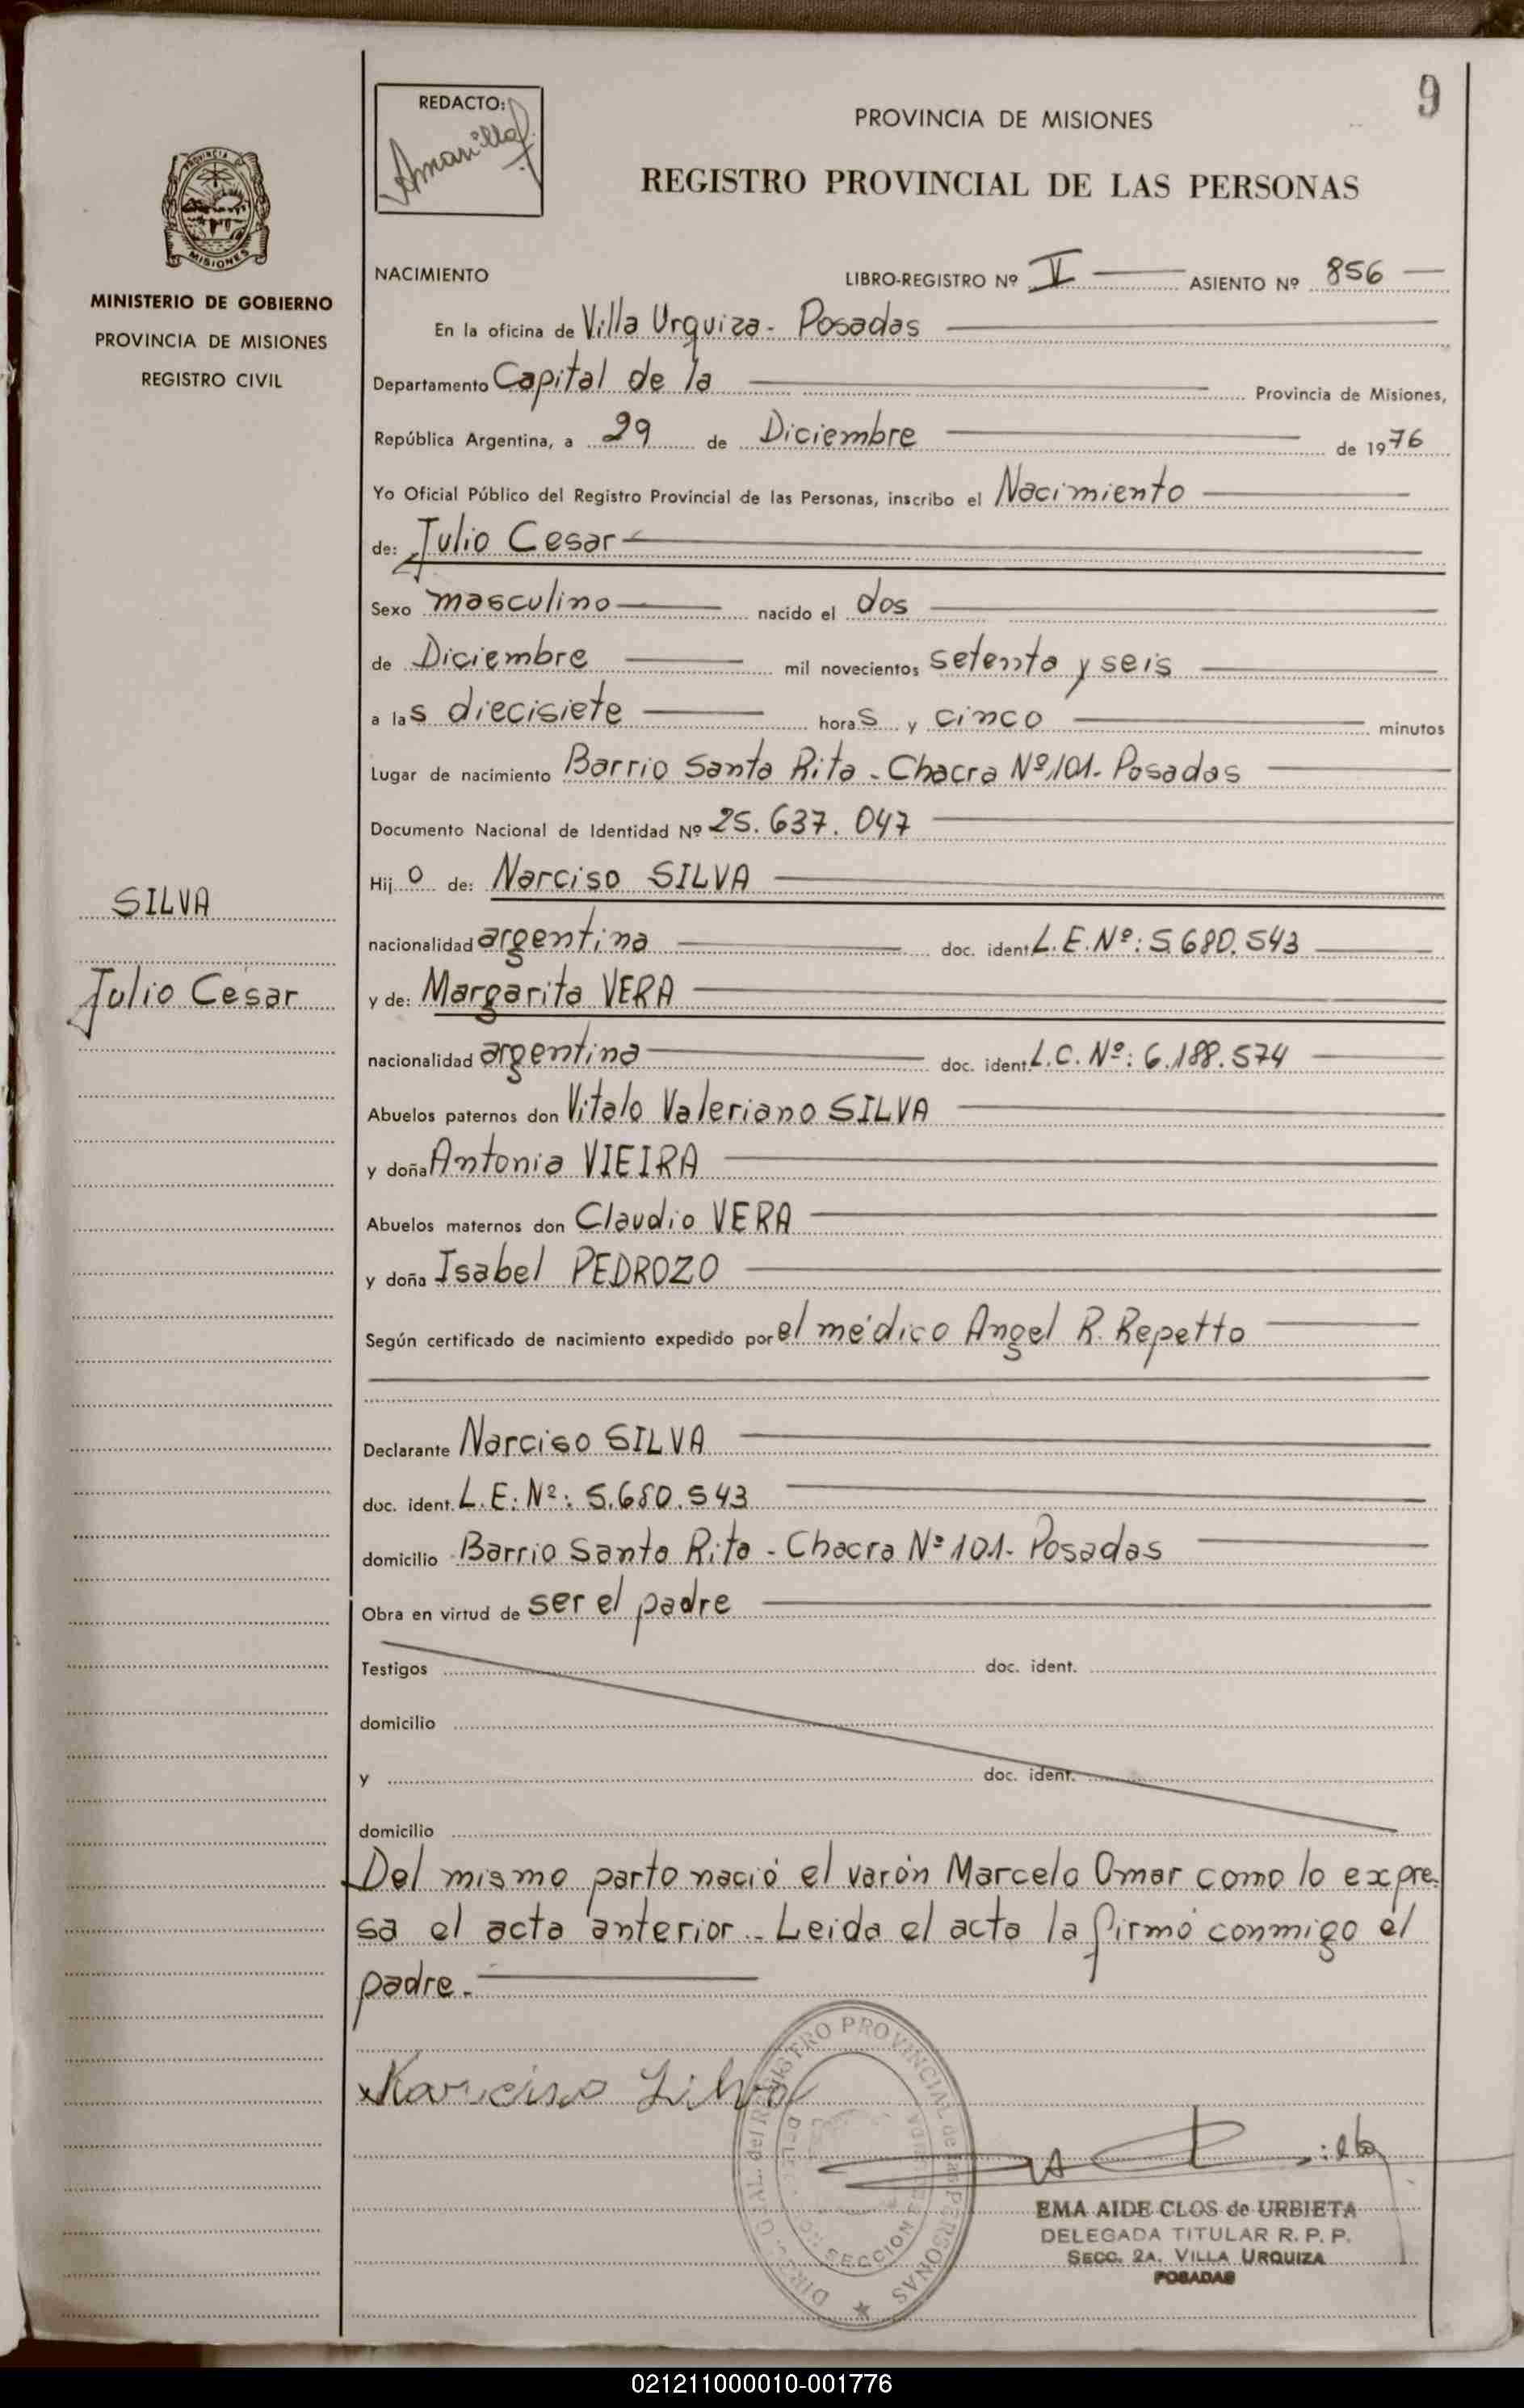 9
REDACTO:
PROVINCIA DE MISIONES
REGISTRO PROVINCIAL DE LAS PERSONAS
MISIONES
MINISTERIO DE GOBIERNO
PROVINCIA DE MISIONES
REGISTRO CIVIL
NACIMIENTO LIBRO-REGISTRO Nº V ASIENTO Nº 856
En la oficina de Villa Urquiza - Posadas
Departamento Capital de la Provincia de Misiones,
República Argentina, a 29 de Diciembre de 1976
Yo Oficial Público del Registro Provincial de las Personas, inscribo el Nacimiento
de: Julio Cesar
Sexo masculino nacido el dos
de Diciembre mil novecientos setenta y seis
a las diecisiete horas y cinco minutos
Lugar de nacimiento Barrio Santa Rita - Chacra Nº 101 - Posadas
Documento Nacional de Identidad Nº 25.637.047
Hijo de: Narciso SILVA
SILVA
nacionalidad argentina doc. ident. L.E.Nº: 5.680.543
Julio Cesar
y de: Margarita VERA
nacionalidad argentina doc. ident. L.C.Nº: 6.188.574
Abuelos paternos don Vitalo Valeriano SILVA
y doña Antonia VIEIRA
Abuelos maternos don Claudio VERA
y doña Isabel PEDROZO
Según certificado de nacimiento expedido por el médico Angel R. Repetto
Declarante Narciso SILVA
doc. ident. L.E.Nº: 5.680.543
domicilio Barrio Santa Rita - Chacra Nº 101 - Posadas
Obra en virtud de ser el padre
Testigos doc. ident.
domicilio
y doc. ident.
domicilio
Del mismo parto nació el varón Marcelo Omar como lo expre-
sa el acta anterior.- Leida el acta la firmó conmigo el
padre.-
Narciso Silva
DIREC. GRAL. del REGISTRO PROVINCIAL de las PERSONAS
SECCION
EMA AIDE CLOS de URBIETA
DELEGADA TITULAR R. P. P.
SECC. 2A. VILLA URQUIZA
POSADAS
021211000010-001776